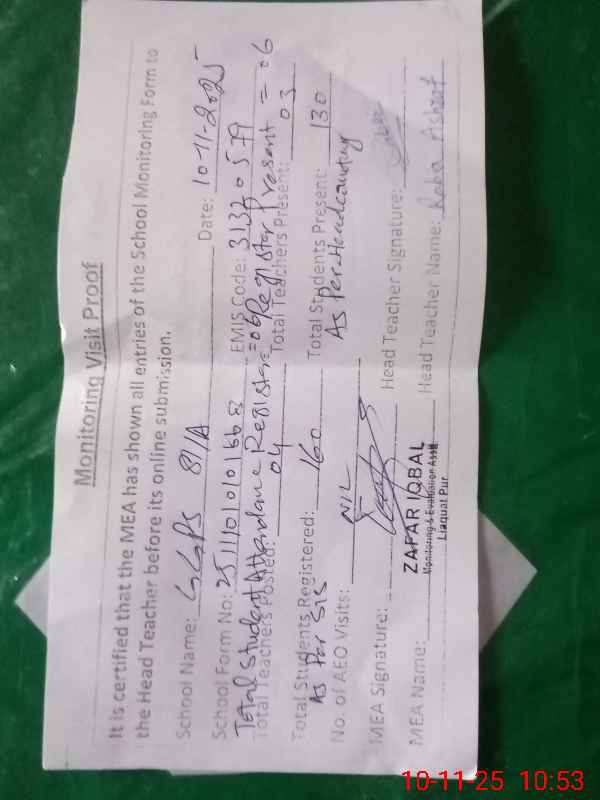 Monitoring Visit Proof
It is certified that the MEA has shown all entries of the School Monitoring Form to
the Head Teacher before its online submission.
School Name: GGPS 81/A Date: 10-11-2025
School Form No: EMIS Code: 31320579
Total Student Attendance Register=06 Register present = 06
Total Teachers Posted: 04 Total Teachers Present: 03
Total Students Registered: 160 Total Students Present: 130
As Per SIS As Per Headcounting
No. of AEO Visits: NIL
MEA Signature: Head Teacher Signature:
ZAFAR IQBAL
MEA Name: Monitoring & Evaluation Asstt Head Teacher Name: Raba Ashraf
Liaquat Pur
10-11-25 10:53